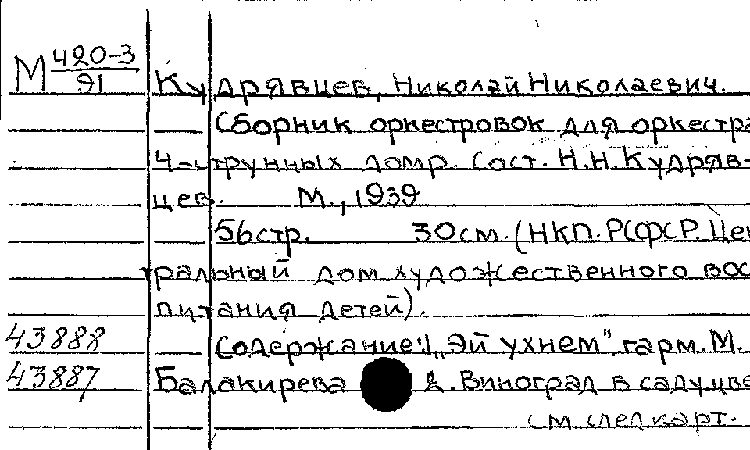 М 420-3
91
Кудрявцев, Николай Николаевич.
Сборник оркестровок для оркестра
4-струнных домр. Сост. Н.Н.Кудряв-
цев. М., 1939
56стр. 30см. (НКП.РСФСР. Цен
тральный дом художественного вос
питания детей).
43888 Содержание: 1 „Эй ухнем" гарм. М.
43887 Балакирева 2. Виноград в саду цве
см след карт.